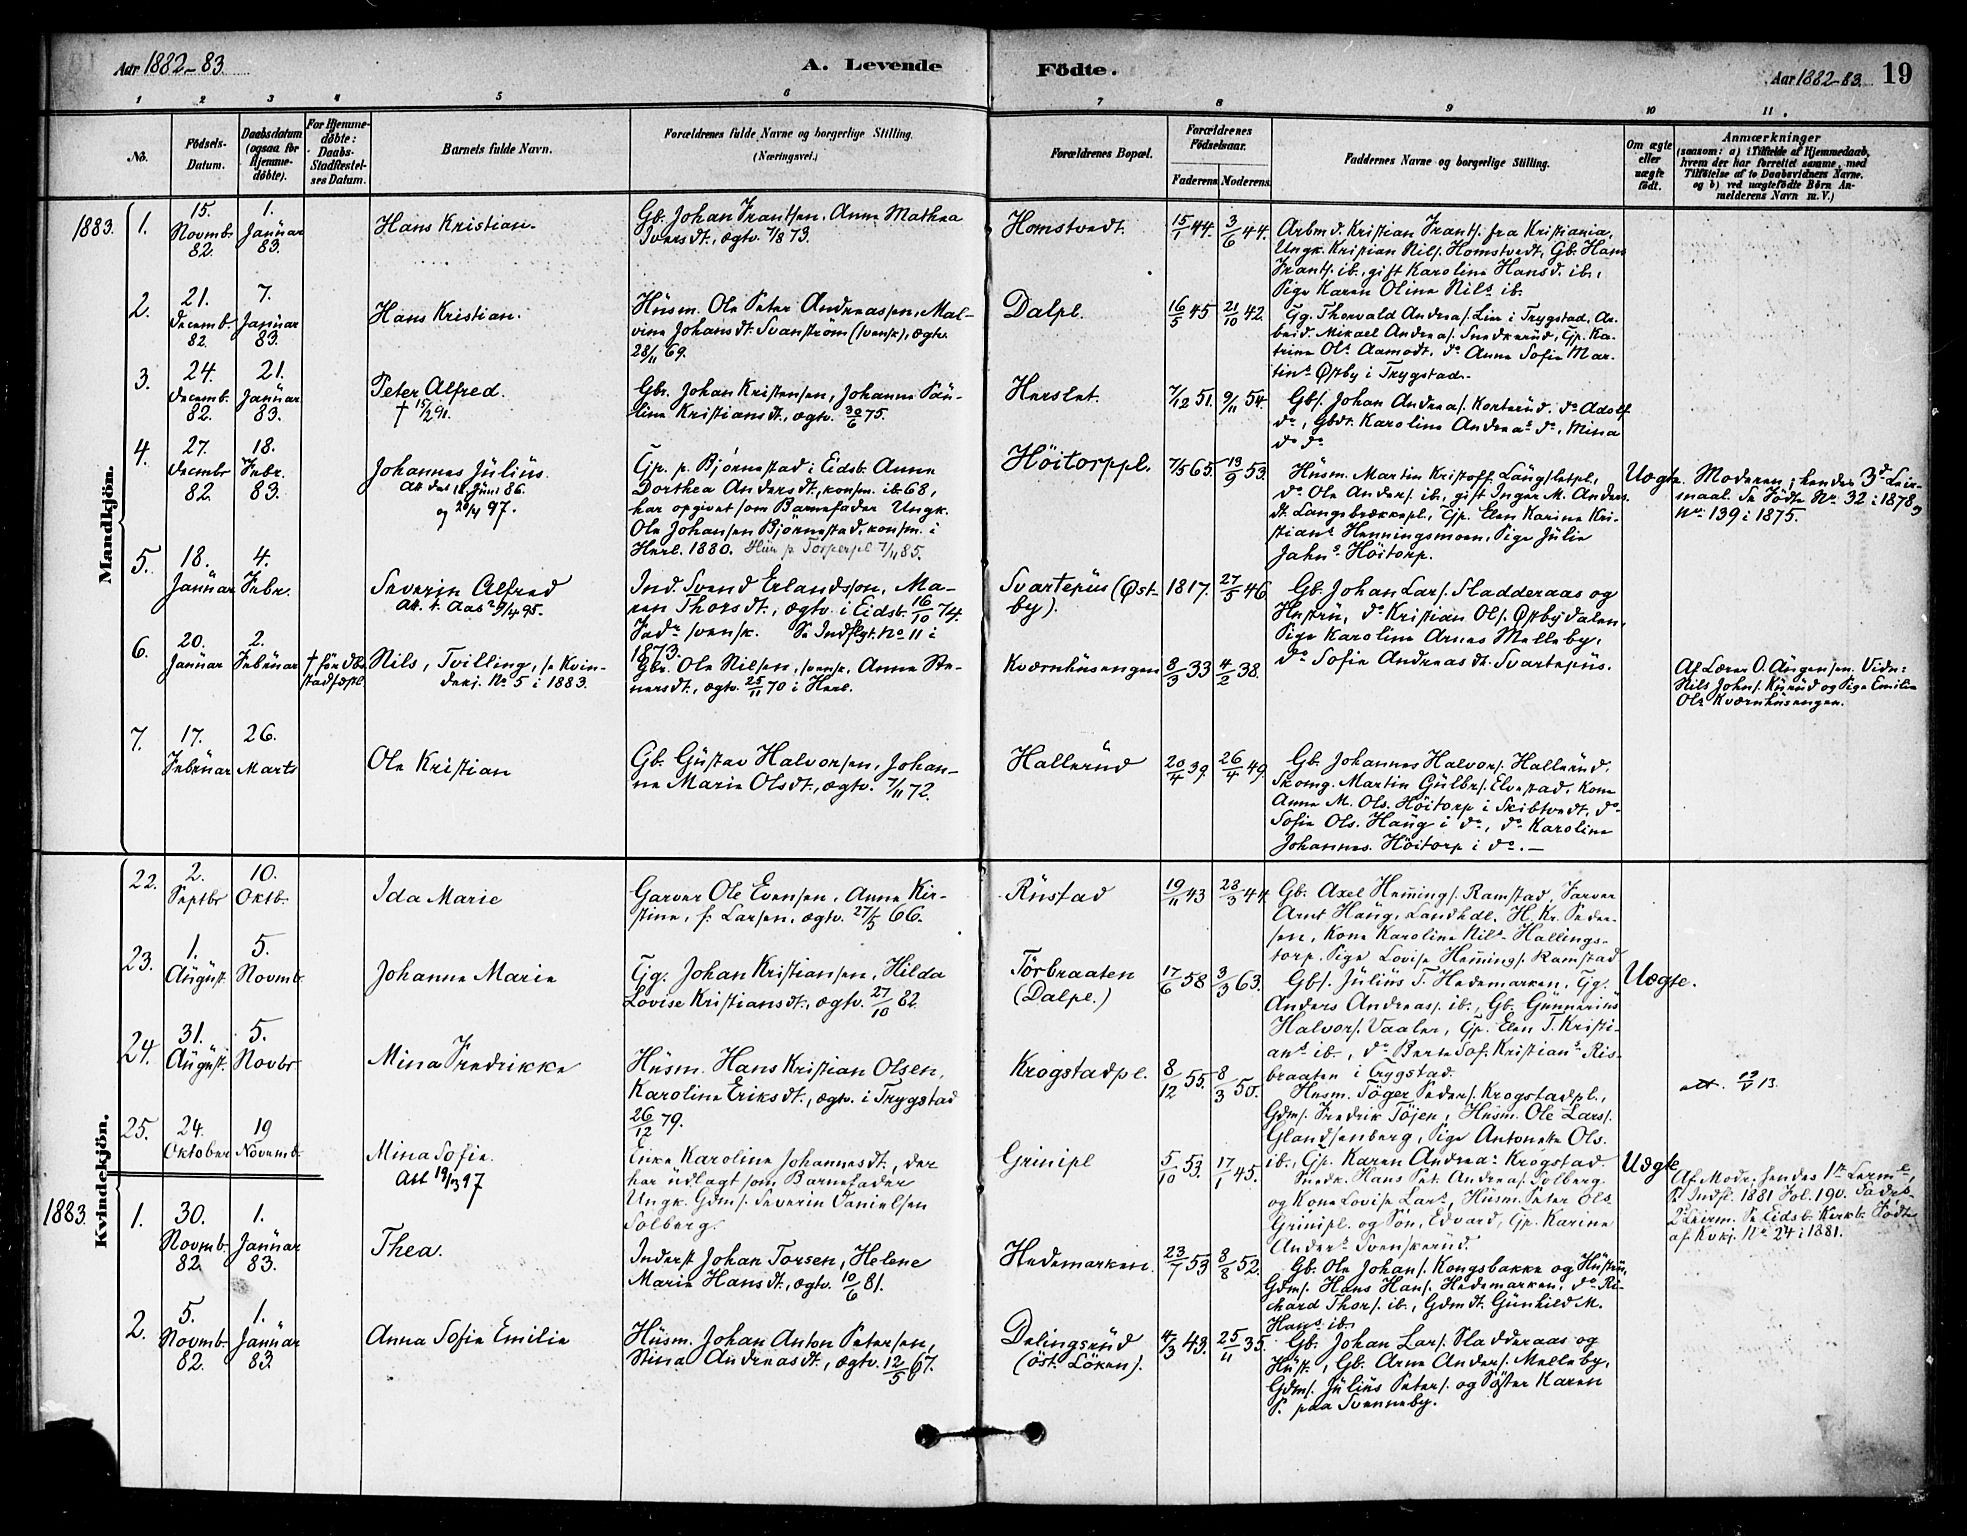 Aar 1882-83.
A. Levende
Födte.
Aar 1882-83.
19
1 2 3 4 5 6 7 8 9 10 11.
No.
Födsels-
Datum.
Daabsdatum
(ogsaa for
Hjemme-
døbte).
For Hjemme-
døbte:
Daabs-
Stadfæstel-
ses Datum.
Barnets fulde Navn.
Forældrenes fulde Navne og borgerlige Stilling.
(Næringsvei.)
Forældrenes Bopæl.
Forældrenes
Födselsaar.
Faderens. Moderens.
Faddernes Navne og borgerlige Stilling.
Om ægte
eller
uægte
født.
Anmærkninger
(saasom: a) i Tilfælde af Hjemmedaab,
hvem der har forrettet samme, med
Tilføielse af to Daabsvidners Navne.
og b) ved uægtefødte Börn An-
melderens Navn m. V.)
Mandkjön.
1883.
1.
15.
Novmb.
82.
1.
Januar
83.
Hans Kristian.
Gb. Johan Frantsen, Anne Mathea
Iversdt., ægtv. 7/8 73.
Homstvedt.
15/1 44. 3/6 44.
Arbmd. Kristian Frants. fra Kristiania,
Ungk. Kristian Nils. Homstvedt, Gb. Hans
Frants. ib., gift Karoline Hansd. ib.,
Pige Karen Oline Nils. ib.
2.
21.
Decemb.
82.
7.
Januar
83.
Hans Kristian.
Husm. Ole Peter Andreassen, Mal-
vine Johansdt. Svanström (svensk), ægtv.
28/11 69.
Dalpl.
16/5 45 21/10 42.
Gg. Thorvald Andreas. Lier i Trygstad, Ar-
beid. Mikael Andreas. Snekkerud, Gp. Ka-
trine Ols. Aamodt, do Anne Sofie Mar-
tins. Østby i Trygstad.
3.
24.
Decemb.
82.
21.
Januar
83.
Peter Alfred.
† 15/2 91.
Gbr. Johan Kristensen, Johanne Pau-
line Kristiansdt., ægtv. 30/6 75.
Herslet.
7/12 51. 9/11 54.
Gbs. Johan Andreas. Korterud, do Adolf
do, Gbdt. Karoline Andreas. do, Mina
do do
4.
27.
Decembr
82.
18.
Febr.
83.
Johannes Julius.
Att. den 12 Juni 86.
og 20/4 97.
Gp. p. Bjørnestad i Eidsb. Anne
Dorthea Andersdt., konfm. ib. 68,
har opgivet som Barnefader Ungk.
Ole Johansen Bjørnestad, konfm. i
Herl. 1880.
Höitorppl.
7/5 65. 19/9 53.
Husm. Martin Kristoff. Langsletpl.,
do Ole Anders. ib., gift Inger M. Anders
dt. Langsbrækkepl., Gp. Elen Karine Kri-
stians. Henningsmoen, Pige Julie
Jahns. Höitorp.
Uægte.
Moderen; hendes 3d Leier-
maal. Se Fødte No. 32 i 1878 og
No. 139 i 1875.
5.
18.
Januar
4.
Febr.
Severin Alfred
Ind. Svend Erlandssøn, Ma-
ren Thorsdt., ægtv. i Eidsb. 16/10 74.
Fadr svensk. Se Indflgt. No 11 i
1873.
Svartepus (Øst-
by).
1817. 27/5 46
Gb. Johan Lars. Sladderaas og
Hustru, do Kristian Ols. Østbydalen,
Pige Karoline Arnes Melleby,
do Sofie Andreasdt. Svartepus.
6.
20.
Januar
2.
Februar
† før Dbs
stadfæst.
Nils, Tvilling, se Kvin-
dekj. No 5 i 1883.
Gbr. Ole Nilsen, svensk, Anne Ste-
nersdt., ægtv. 25/11 70 i Herl.
Kværnhusengen
8/3 33 4/2 38.
Af Lærer O. Augensen. Vidn:
Nils Johns. Kurud og Pige Emilie
Ols. Kværnhusengen.
7.
17.
Februar
26.
Marts
Ole Kristian
Gb. Gustav Halvorsen, Johan-
ne Marie Olsdt., ægtv. 7/11 72.
Hallerud
20/4 39. 26/4 49.
Gb. Johannes Halvors. Hallerud,
Skomg. Martin Gulbrs. Elvestad, Kone
Anne M. Ols. Höitorp i Skibtvedt, do
Sofie Ols. Haug i do, do Karoline
Johannes. Höitorp i do. —
Kvindekjön.
22.
2.
Septbr
10.
Oktb.
Ida Marie
Garver Ole Evensen, Anne Kir-
stine, f. Larsen, ægtv. 27/5 66.
Rustad
19/11 43 28/3 44.
Gb. Axel Hemings. Ramstad, Farver
Arnt Haug, Landhdl. H. Kr. Peder-
sen, Kone Karoline Nils. Hallings-
torp, Pige Lovise Hemings. Ramstad
23.
1.
August.
5.
Novmb.
Johanne Marie
Gg. Johan Kristiansen, Hilda
Lovise Kristiansdt., ægtv. 27/10 82.
Törbraaten
(Dalpl.)
17/6 58 3/3 63.
Gbs. Julius T. Hedemarken, Gg.
Anders Andreas. ib., Gb. Gunnerius
Halvors. Vaaler, Gp. Elen T. Kristi-
ans. ib., do Berte Sof. Kristians. Ris-
braaten i Trygstad.
Uægte.
24.
31.
August.
5.
Novbr
Mina Fredrikke
Husm. Hans Kristian Olsen,
Karoline Eriksdt., ægtv. i Trygstad
26/12 79.
Krogstadpl.
8/12 55. 8/3 50.
Husm. Töger Peders. Krogstadpl.,
Gdms. Fredrik Töjen, Husm. Ole Lars.
Glandsenberg, Pige Antonette Ols.
ib., Gp. Karen Andreas. Krogstad.
25.
24.
Oktober
19
Novemb.
Mina Sofie.
Att 19/3 97
Enke Karoline Johannesdt., der
har udlagt som Barnefader
Ungk. Gdms. Severin Danielsen
Solberg.
Grinipl
5/10 53. 17/1 45.
Snedk. Hans Pet. Andreas. Solberg
og Kone Lovise Lars., Husm. Peter Ols.
Grinipl. og Søn, Edvard, Gp. Karine
Anders. Svenskerud.
Uægte
Af Modr, hendes 1ste Leierm.,
Se Indfl. 1881 Fol. 190. Fadrs
2d Leirm. Se Eidsb. Kirkb. Födte
af Kvkj. No 24 i 1881.
1883.
1.
30.
Novmb.
82.
1.
Januar
83.
Thea.
Inderst Johan Torsen, Helene
Marie Hansdt., ægtv. 10/6 81.
Hedemarken.
23/7 53 8/8 52.
Gb. Ole Johans. Kongsbakke og Hustru,
Gdms. Hans Hans. Hedemarken, do Ri-
chard Thors. ib., Gdmdt. Gunhild M.
Hans. ib.
2.
5.
Novmb.
82.
1.
Januar
83.
Anna Sofie Emilie
Husm. Johan Anton Petersen,
Stina Andreasdt., ægtv. 12/5 67.
Delingsrud
(öst. Löken).
4/3 43. 25/11 35.
Gb. Johan Lars. Sladderaas og
Hust., Gb. Arne Anders. Melleby,
Gdms. Julius Peters. og Søster Karen
P. paa Svenneby.